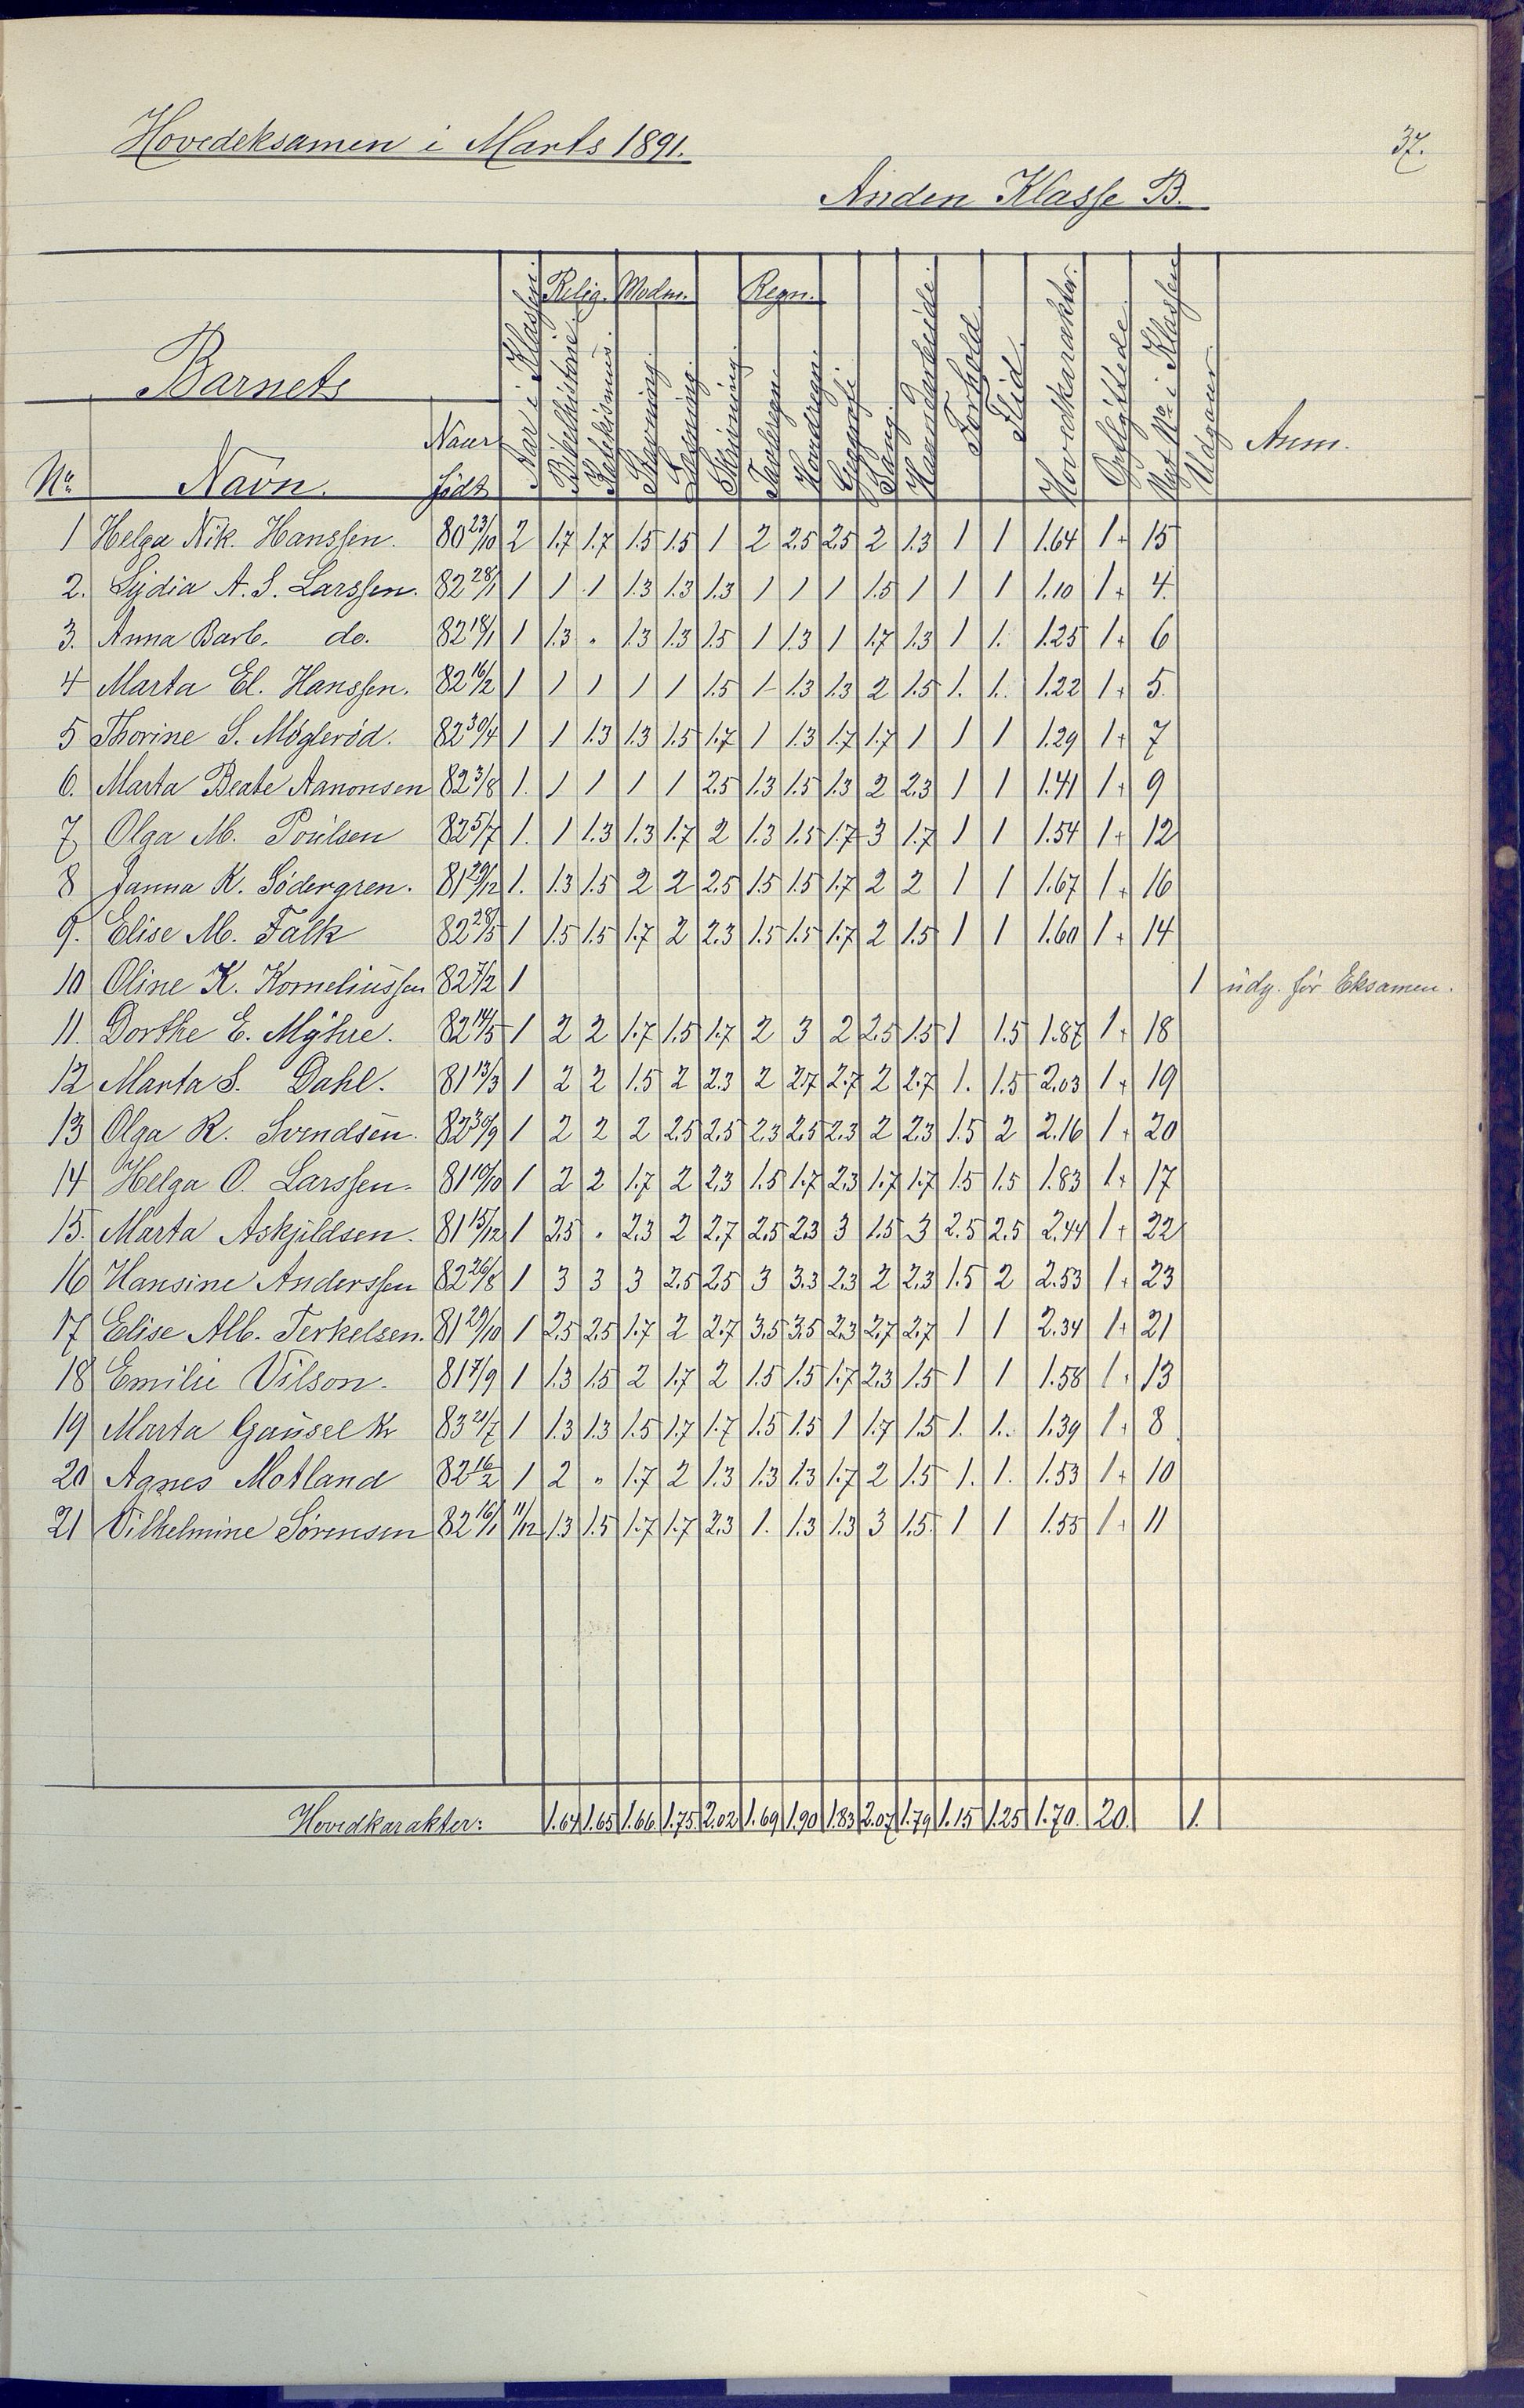 Hovedeksamen i Marts 1891.
37.
Anden Klasse B.
Barnets
No. Navn. Naar født Aar i Klassen. Relig. Bibelhistorie. Katekismus. Modm. Skrivning. Tavleregn. Regn. Hovedregn. Geografi. Sang. Haandarbeide. Forhold. Flid. Hovedkarakter. Opflyttede. Nyt No. i Klassen Udgaar. Anm.
1 Helga Nik. Hanssen. 80 23/10 2 1.7 1.7 1.5 1.5 1 2 2.5 2.5 2 1.3 1 1 1.64 1 + 15
2. Lydia A. S. Larssen. 82 28/1 1 1 1 1.3 1.3 1.3 1 1 1 1.5 1 1 1 1.10 1 + 4.
3. Anna Barb. do. 82 18/1 1 1.3 " 1.3 1.3 1.5 1 1.3 1 1.7 1.3 1 1. 1.25 1 + 6
4 Marta El. Hanssen. 82 16/2 1 1 1 1 1 1.5 1 1.3 1.3 2 1.5 1. 1. 1.22 1 + 5.
5 Thorine S. Mögleröd. 82 30/4 1 1 1.3 1.3 1.5 1.7 1 1.3 1.7 1.7 1 1 1 1.29 1 + 7
6. Marta Beate Aanonsen 82 3/8 1. 1 1 1 1 2.5 1.3 1.5 1.3 2 2.3 1 1 1.41 1 + 9
7 Olga M. Poulsen 82 5/7 1. 1 1.3 1.3 1.7 2 1.3 1.5 1.7 3 1.7 1 1 1.54 1 + 12
8 Janna K. Södergren. 81 29/12 1. 1.3 1.5 2 2 2.5 1.5 1.5 1.7 2 2 1 1 1.67 1 + 16
9. Elise M. Falk 82 28/5 1 1.5 1.5 1.7 2 2.3 1.5 1.5 1.7 2 1.5 1 1 1.60 1 + 14
10 Oline K. Korneliussen 82 7/2 1 1 udg. før Eksamen.
11. Dorthe E. Myhre. 82 14/5 1 2 2 1.7 1.5 1.7 2 3 2 2.5 1.5 1 1.5 1.87 1 + 18
12 Marta S. Dahl. 81 13/3 1 2 2 1.5 2 2.3 2 2.7 2.7 2 2.7 1. 1.5 2.03 1 + 19
13 Olga R. Svendsen. 82 30/9 1 2 2 2 2.5 2.5 2.3 2.5 2.3 2 2.3 1.5 2 2.16 1 + 20
14 Helga O. Larssen. 81 10/10 1 2 2 1.7 2 2.3 1.5 1.7 2.3 1.7 1.7 1.5 1.5 1.83 1 + 17
15. Marta Askjildsen. 81 15/12 1 2.5 " 2.3 2 2.7 2.5 2.3 3 1.5 3 2.5 2.5 2.44 1 + 22
16 Hansine Anderssen 82 26/8 1 3 3 3 2.5 2.5 3 3.3 2.3 2 2.3 1.5 2 2.53 1 + 23
17 Elise Alb. Terkelsen. 81 29/10 1 2.5 2.5 1.7 2 2.7 3.5 3.5 2.3 2.7 2.7 1 1 2.34 1 + 21
18 Emilie Vilson. 81 7/9 1 1.3 1.5 2 1.7 2 1.5 1.5 1.7 2.3 1.5 1 1 1.58 1 + 13
19 Marta Gausel K 83 21/7 1 1.3 1.3 1.5 1.7 1.7 1.5 1.5 1 1.7 1.5 1. 1. 1.39 1 + 8
20 Agnes Motland 82 16/2 1 2 " 1.7 2 1.3 1.3 1.3 1.7 2 1.5 1. 1. 1.53 1 + 10
21 Vilhelmine Sørensen 82 16/1 11/12 1.3 1.5 1.7 1.7 2.3 1. 1.3 1.3 3 1.5 1 1 1.55 1 + 11
Hovedkarakter: 1.64 1.65 1.66 1.75 2.02 1.69 1.90 1.83 2.07 1.79 1.15 1.25 1.70. 20. 1.